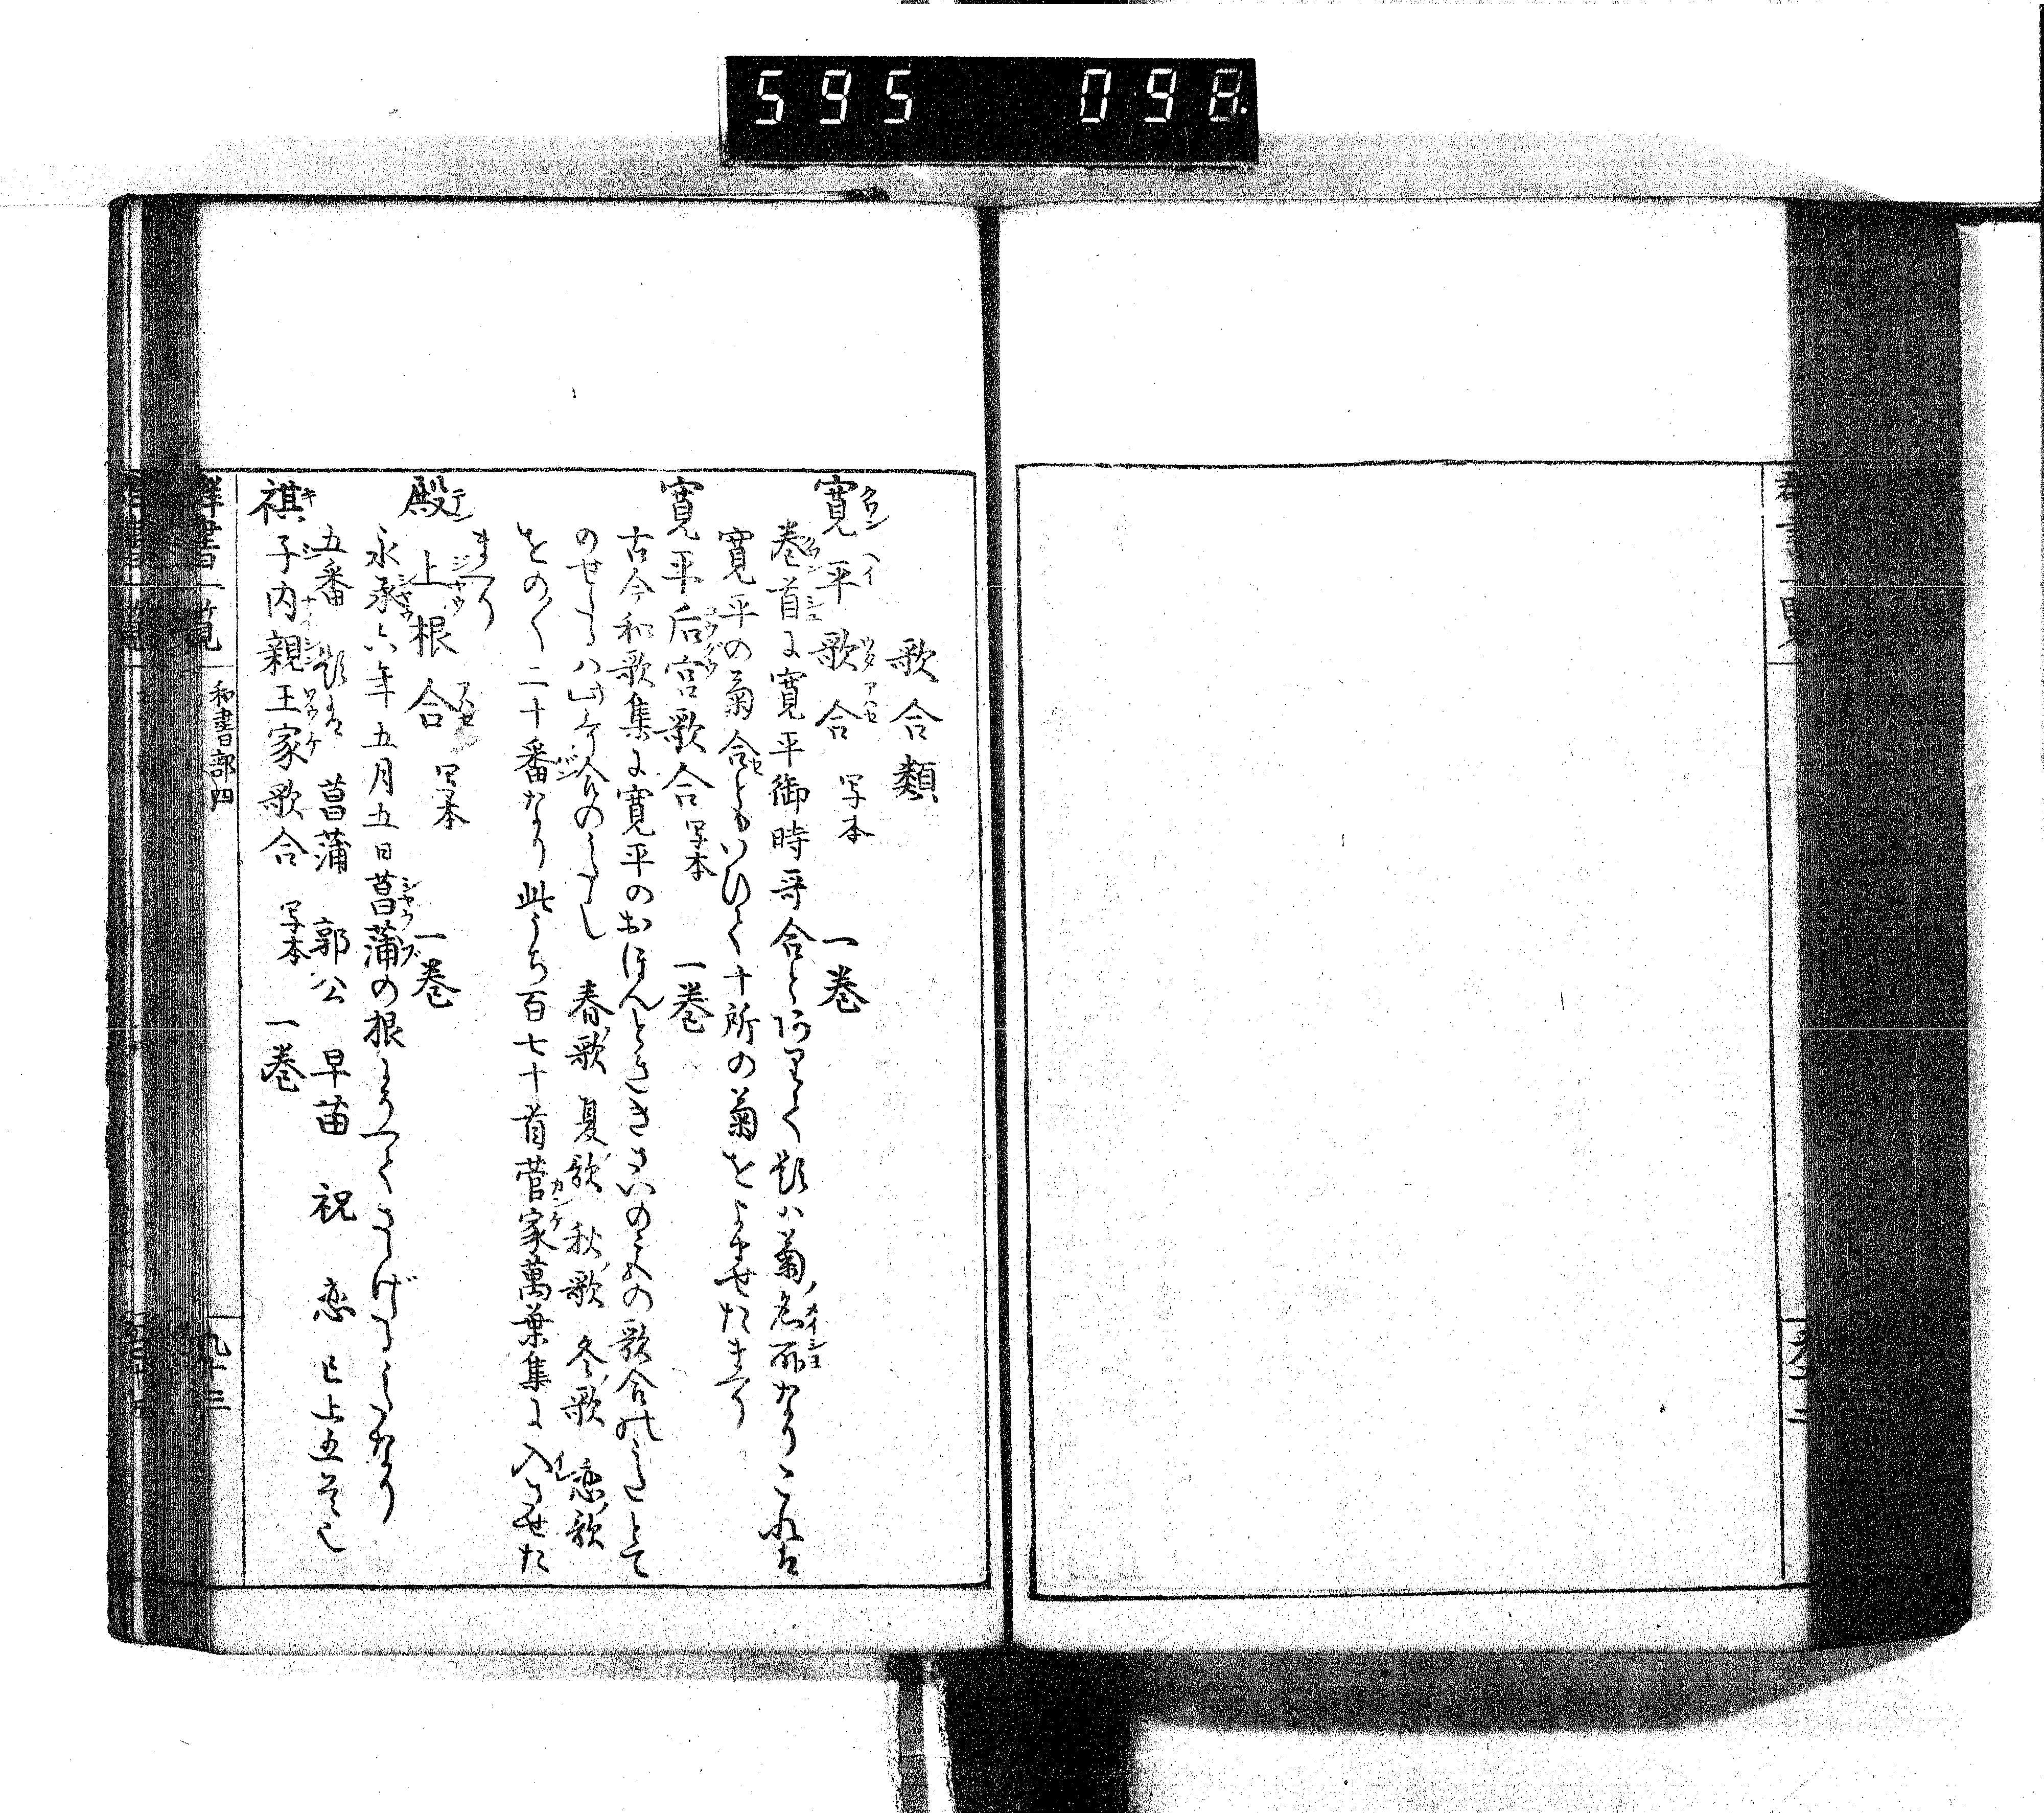 595 098
歌合類
寛平歌合 写本 一巻
巻首に寛平御時哥合とありて題は菊ノ名所なりこれ古
寛平の菊合ともいひて十所の菊をよませたまへり
寛平后宮歌合 写本 一巻
古今和歌集に寛平のおほんときききさいの宮の歌合のうたとて
のせしるハ此哥合のうたし 春歌 夏歌 秋歌 冬歌 恋歌
をのく二十番なり此うち百七十首菅家萬葉集に入させた
まへり
殿上根合 写本 一巻
永承六年五月五日菖蒲の根によつてさゝげるうたなり
五番 題は 菖蒲 郭公 早苗 祝 恋 已上五首也
祺子内親王家歌合 写本 一巻
群書一覧 和書部四 九十三